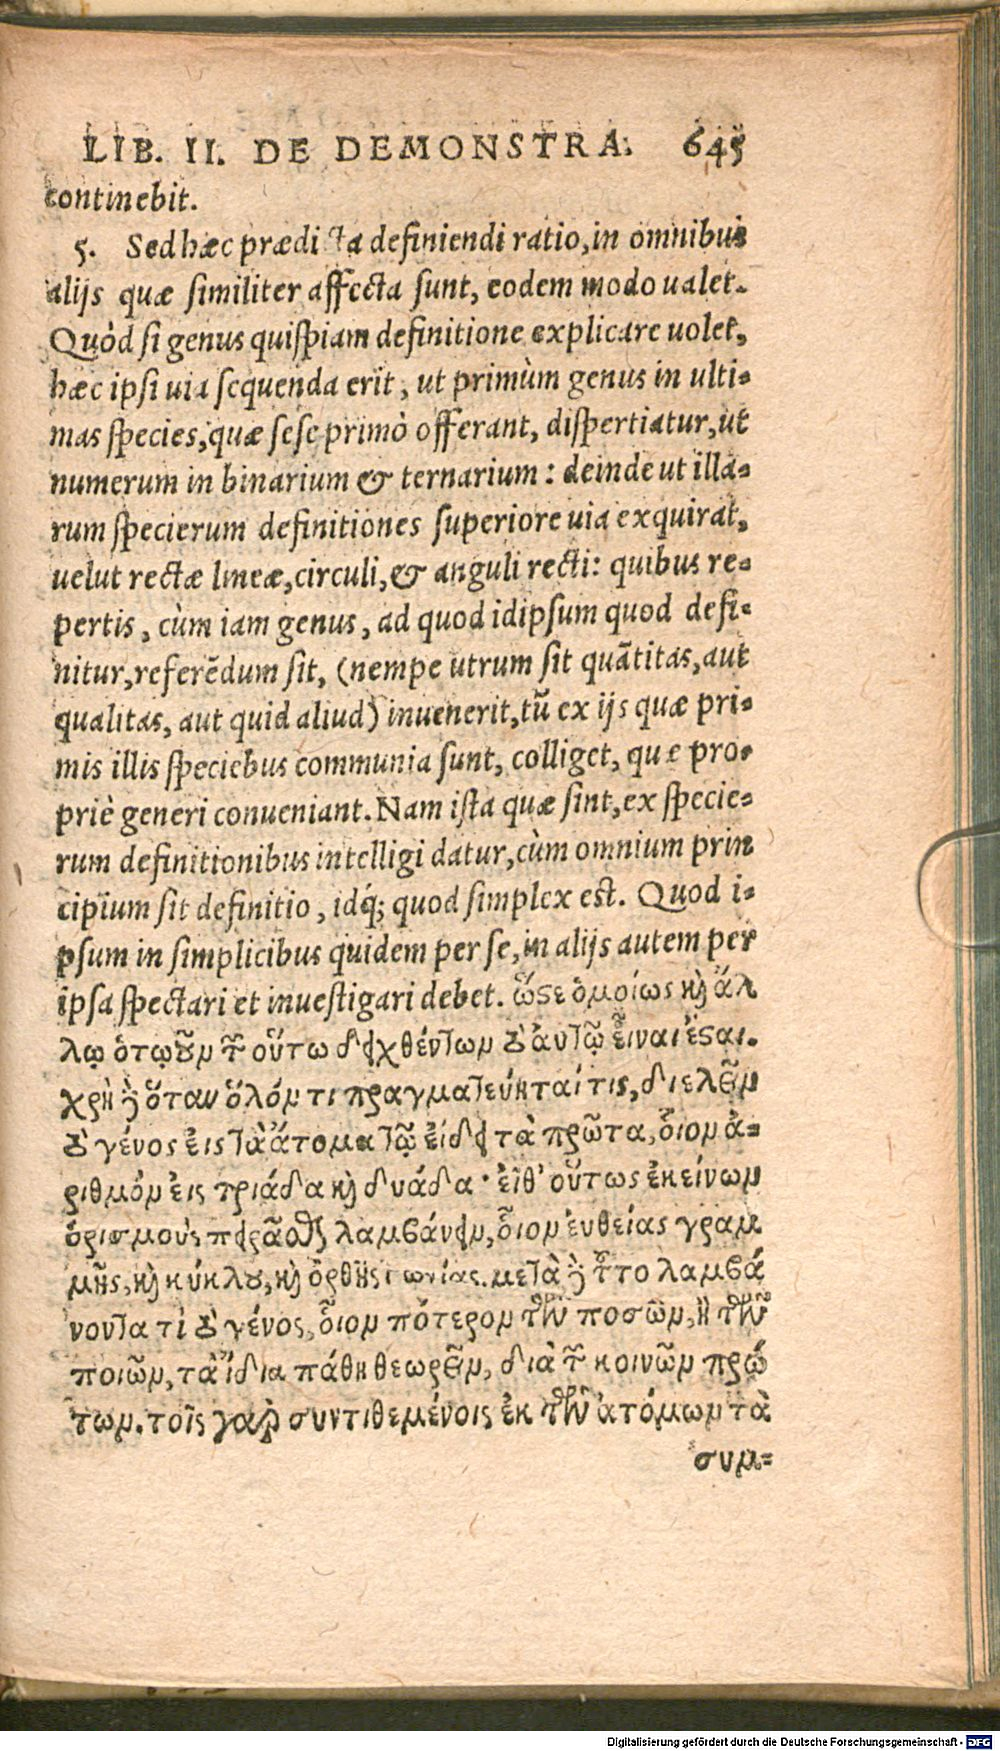 LIB. II. DE DEMONSTRA. 645
continebit.
5. Sed hæc prædicta definiendi ratio, in omnibus
alijs quæ similiter affecta sunt, eodem modo ualet.
Quòd si genus quispiam definitione explicare uolet,
hæc ipsi uia sequenda erit, ut primùm genus in ulti-
mas species, quæ sese primò offerant, dispertiatur, ut
numerum in binarium & ternarium: deinde ut illa-
rum specierum definitiones superiore uia exquirat,
uelut rectæ lineæ, circuli, & anguli recti: quibus re-
pertis, cùm iam genus, ad quod idipsum quod defi-
nitur, referẽdum sit, (nempe utrum sit quãtitas, aut
qualitas, aut quid aliud) inuenerit, tũ ex ijs quæ pri-
mis illis speciebus communia sunt, colliget, quæ pro-
priè generi conueniant. Nam ista quæ sint, ex specie-
rum definitionibus intelligi datur, cùm omnium prin
cipium sit definitio, idq́; quod simplex est. Quod i-
psum in simplicibus quidem per se, in alijs autem per
ipsa spectari et inuestigari debet. ὥςε ὁμοίως κỳ ἄλ
λῳ ὁτῳοῦν τῶν οὕτω δειχθέντων τὸ ἀυτῷ εἶναι ἔςαι.
χρὴ δὲ ὅταν ὅλόν τι πραγματεύηταί τις, διελεῖν
τὸ γένος εἰς τὰ ἄτομα τῷ εἴδει τὰ πρῶτα, οἷον ἀ-
ριθμὸν εἰς τριάδα κỳ δυάδα· εἶθ' οὕτως ἐκείνων
ὁρισμοὺς πειρᾶσθαι λαμβάνειν, οἷον ἐυθείας γραμ
μῆς, κỳ κύκλου, κỳ ὀρθῆς γωνίας. μετὰ δὲ τοῦτο λαμβά
νοντα τί τὸ γένος, οἷον πότερον τῶν ποσῶν, ἢ τῶν
ποιῶν, τὰ ἴδια πάθη θεωρεῖν, διὰ τῶν κοινῶν πρώ
των. τοῖς γὰρ συντιθεμένοις ἐκ τῶν ἀτόμων τὰ
συμ-
Digitalisierung gefördert durch die Deutsche Forschungsgemeinschaft - DFG